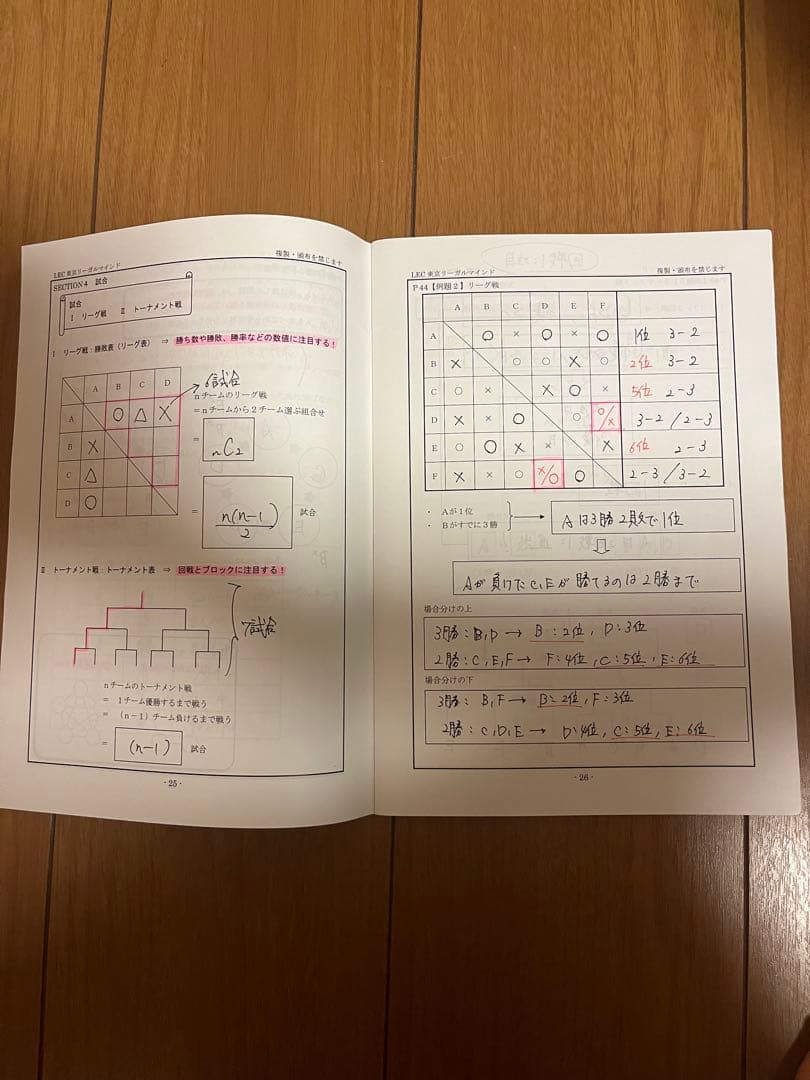 LEC東京リーガルマインド 複製・頒布を禁じます
SECTION4 試合
試合
Ⅰ リーグ戦 Ⅱ トーナメント戦
Ⅰ リーグ戦:勝敗表(リーグ表) ⇒ 勝ち数や勝敗、勝率などの数値に注目する!
6試合
A B C D
A ○ △ ×
B ×
C △
D ○
nチームのリーグ戦
=nチームから2チーム選ぶ組合せ
= nC2
= n(n-1)/2 試合
Ⅱ トーナメント戦:トーナメント表 ⇒ 回戦とブロックに注目する!
7試合
nチームのトーナメント戦
= 1チーム優勝するまで戦う
= (n-1)チーム負けるまで戦う
= (n-1) 試合
- 25 -
LEC東京リーガルマインド 複製・頒布を禁じます
P44【例題2】リーグ戦
A B C D E F
A ○ × ○ × ○ 1位 3-2
B × ○ ○ × ○ 2位 3-2
C ○ × × ○ × 5位 2-3
D × × ○ ○ ○/× 3-2/2-3
E ○ ○ × × × 6位 2-3
F × × ○ ×/○ ○ 2-3/3-2
・ Aが1位
・ Bがすでに3勝
Aは3勝2敗で1位
Aが負けたC,Eが勝てるのは2勝まで
場合分けの上
3勝:B,D → B:2位, D:3位
2勝:C,E,F → F:4位, C:5位, E:6位
場合分けの下
3勝:B,F → B:2位, F:3位
2勝:C,D,E → D:4位, C:5位, E:6位
- 26 -